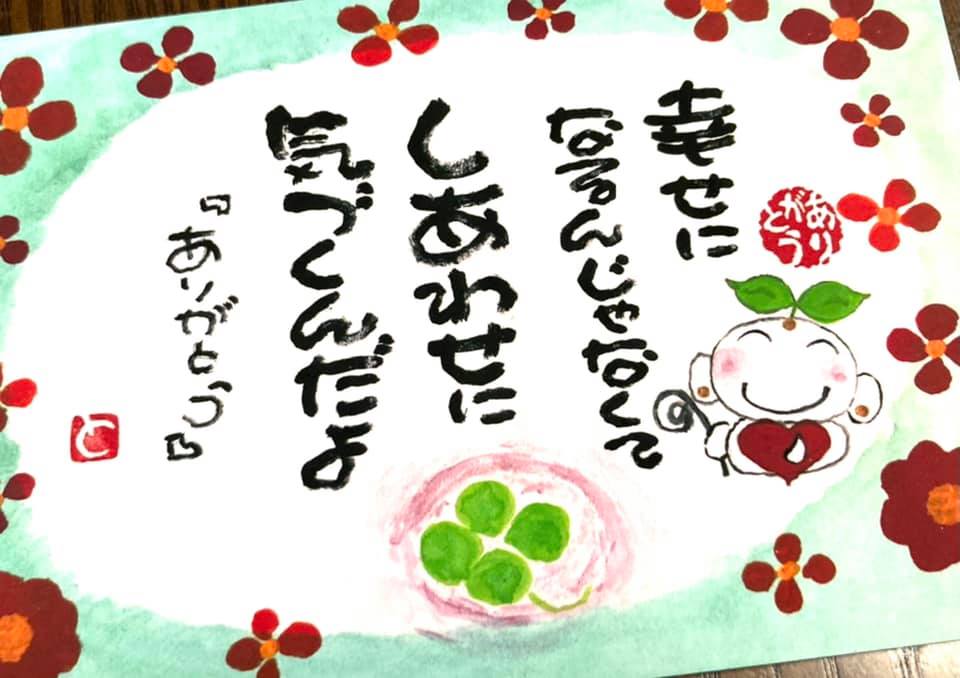 幸せに
なるんじゃなくて
しあわせに
気づくんだよ
『ありがとう』
ありがとう
と